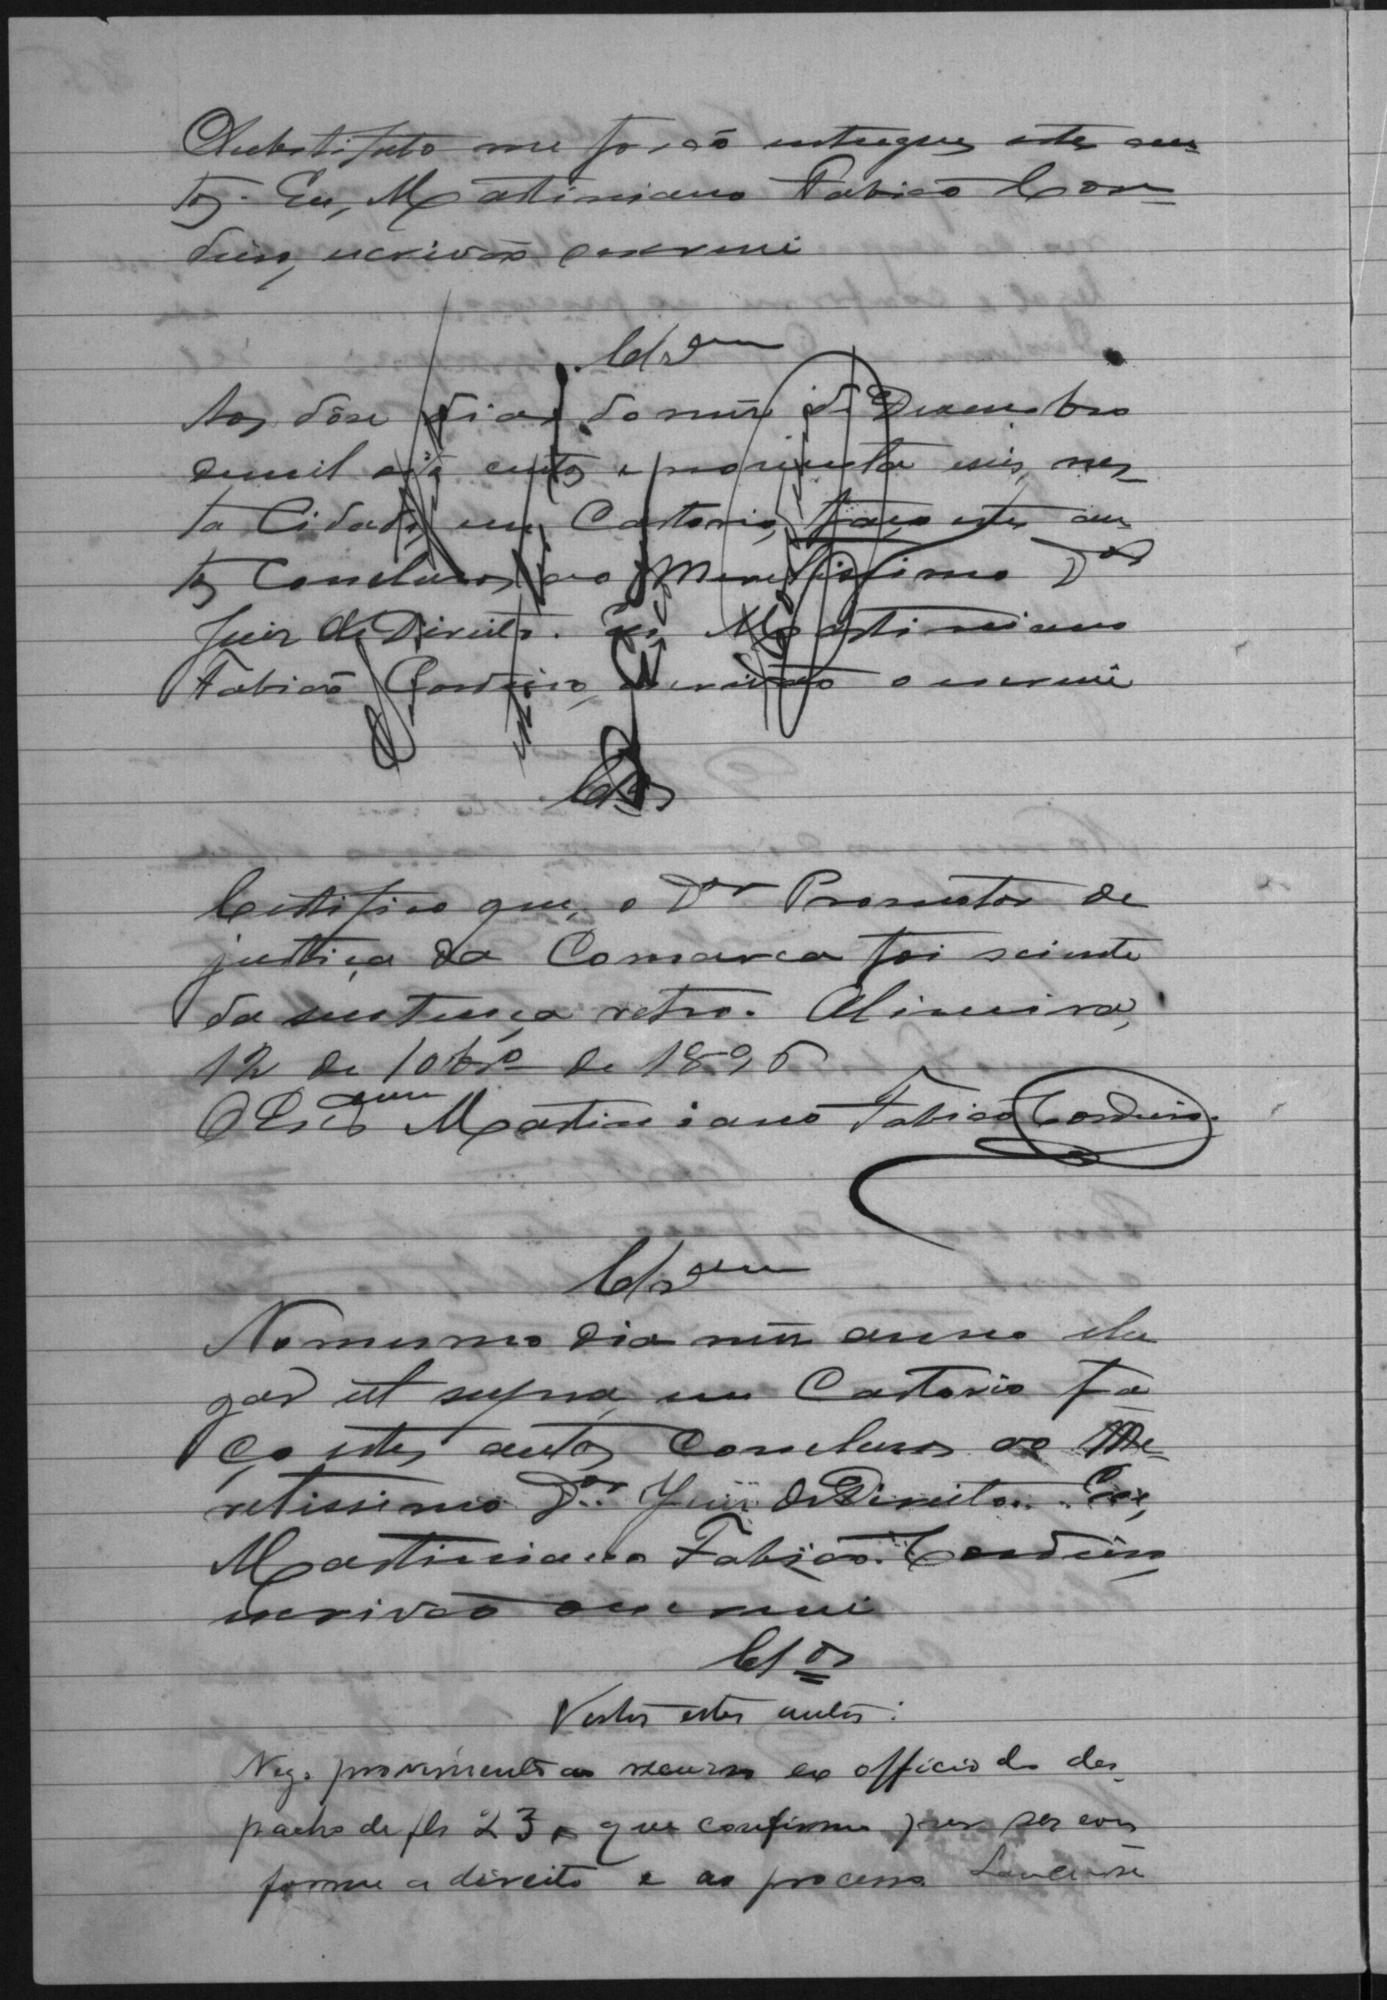 Substituto me forão entregues estes au-
tos. Eu, Martiniano Fabião Cor-
deiro, escrivão o escrevi
Clsam
Aos dôse dias do mês de Desembro
de mil oito centos e noventa e seis, nes-
ta Cidade, em Cartorio, faço estes au-
tos Conclusos ao Meretissimo Dor
Juiz de Direito. Eu Martiniano
Fabião Cordeiro, escrivão o escrevi
Clsos
Certifico que, o Dor Promotor de
justiça da Comarca foi sciente
da sentença retro. Limeira,
12 de 10brº de 1896
O Escram Martiniano Fabião Cordeiro.
Clsam
No mesmo dia mês anno e lu
gar ut supra, em Cartorio fa-
ço estes autos Conclusos ao Me-
retissimo Dor Juiz de Direito. Eu,
Martiniano Fabião Cordeiro,
escrivão o escrevi
Clsos
Vistos estes autos:
Nego provimento ao recurso ex officio do des-
pacho de fls 23, que confirmo por ser con-
forme a direito e ao processo.